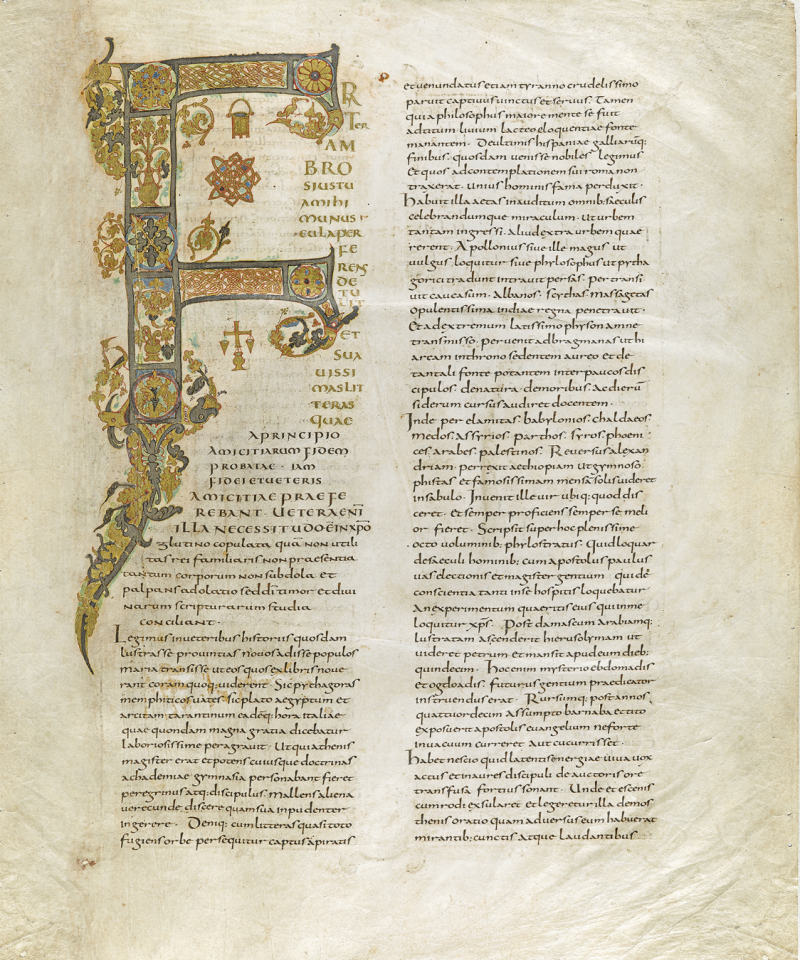 F
R
Ter
AM
BRO
SIUSTU
AMIHI
MUNUS
CULAPER
FE
RENS
DE
TU
LIT
ET
SUA
UISSI
MASLIT
TERAS
QUAE
APRINCIPIO
AMICITIARUM FIDEM
PROBATAE · IAM
FIDEI ETUETERIS
AMICITIAE PRAEFE
REBANT · UETERAENĪ
ILLA NECESSITUDOĒINXP̄O
glutino copulata quā non utili
tas rei familiaris non praesentia
tantum corporum non subdola et
palpans adolatio sed dī timor et diui
narum scripturarum studia
conciliant ·
Legimus inueteribus historiis quosdam
lustrasse prouintias nouos adisse populos
maria transisse ut eos quos exlibris noue
rant coram quoq; uiderent · Sic pythagoras
memphiticos uates · sic plato aegyptum et
arcitam tarantinum eadēq; hora italiae
quae quondam magna gratia dicebatur
laboriosissime peragrauit · Ut qui athenis
magister erat et potens cuiusque doctrinas
achademiae gymnasia personabant fieret
peregrinus atq; discipulus · Mallens aliena
uerecunde discere quam sua inpudenter
ingerere · Deniq; cum litteras quasi toto
fugiens orbe persequitur captus a piratis
et uenundatus etiam tyranno crudelissimo
paruit captiuus uinctus et seruus · Tamen
quia philosophus maiore mente se fuit
ad titum liuium lacteo eloquentiae fonte
manantem · De ultimis hispaniae galliarūq;
finibus · quosdam uenisse nobiles legimus
Et quos ad contemplationem sui roma non
traxerat · unius hominis fama perduxit ·
Habuit illa aetas inauditum omnib; saeculis
celebrandumque miraculum · Ut urbem
tantam ingressi · Aliud extra urbem quae
rerent · Apollonius siue ille magus ut
uulgus loquitur siue phylosophus ut pytha
gorici tradunt intrauit persas · pertransi
uit caucasum · Albanos · scythas massagetas
opulentissima indiae regna penetrauit ·
Et ad extremum latissimo physon amne
transmisso · peruenit ad bragmanas ut hi
arcam in throno sedentem aureo et de
tantali fonte potantem inter paucos dis
cipulos · de natura · de moribus · Ac dierū
siderum cursus audiret docentem ·
Inde per elamitas · babylonios · chaldaeos
medos · Assyrios · parthos · syros · phoeni
ces · arabes · palestinos · Reuersus alexan
driam · perrexit aethiopiam ut gymnoso
phistas et famosissimam mensā solis uideret
in sabulo · Inuenit ille uir ubiq; quod dis
ceret · Et semper proficiens semper se meli
or fieret · Scripsit super hoc plenissime
octo uoluminib; phylostratus · Quid loquar
de saeculi hominib; cum apostolus paulus
uas eleccionis et magister gentium · qui de
conscientia tanti in se hospitis loquebatur
An experimentum quaeritis eius qui in me
loquitur xps̄ · Post damascum arabiamq;
lustratam ascenderit hierusolymam ut
uideret petrum et mansit apud eum dieb;
quindecim · Hoc enim mysterio ebdomadis
et ogdoadis · futurus gentium praedicator
instruendus erat · Rursumq; post annos
quattuordecim assumpto barnaba et tito
exposuerit apostolis euangelium ne forte
in uacuum curreret aut cucurrisset ·
Habet nescio quid latentis energiae uiua uox
actus et in aures discipuli de auctoris ore
transfusa fortius sonant · Unde et escenis
cum rodi exsularet et legeretur illa demos
thenis oratio quam aduersus eum habuerat
mirantib; cunctis atque laudantibus